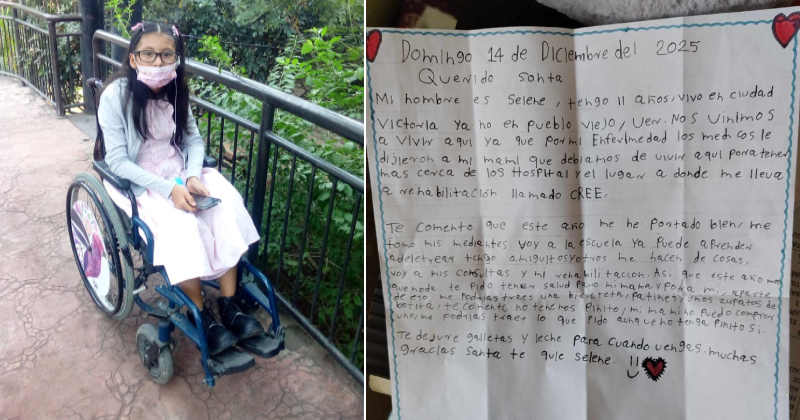 Domingo 14 de Diciembre del 2025
Querido Santa
Mi nombre es Selene, tengo 11 años, vivo en ciudad
Victoria ya no en pueblo viejo, Ver. Nos vinimos
a vivir aqui ya que por mi Enfermedad los medicos le
dijieron a mi mami que debiamos de vivir aqui para tener
mas cerca de los Hospital y el lugar a donde me lleva
a rehabilitación llamado CREE.
Te comento que este año me he portado bien, me
tomo mis medicantes voy a la escuela ya puede aprender
adeletrear tengo amiguitos y otros me hacen de cosas,
voy a mis consultas y mi rehabilitaccion. Asi que este año mas
que node te pido tener salud para mi mama y para mi, aparte
de eso me podrias traes una bicicleta, patines, unos zapatos de
bonita, te comento no tenemos Pinito, mi mami no puedo comprar
uno, me podrias traer lo que pido aunque no tenga pinito si.
Te dejare galletas y leche para cuando vengas. muchas
gracias santa te quie selene. !!